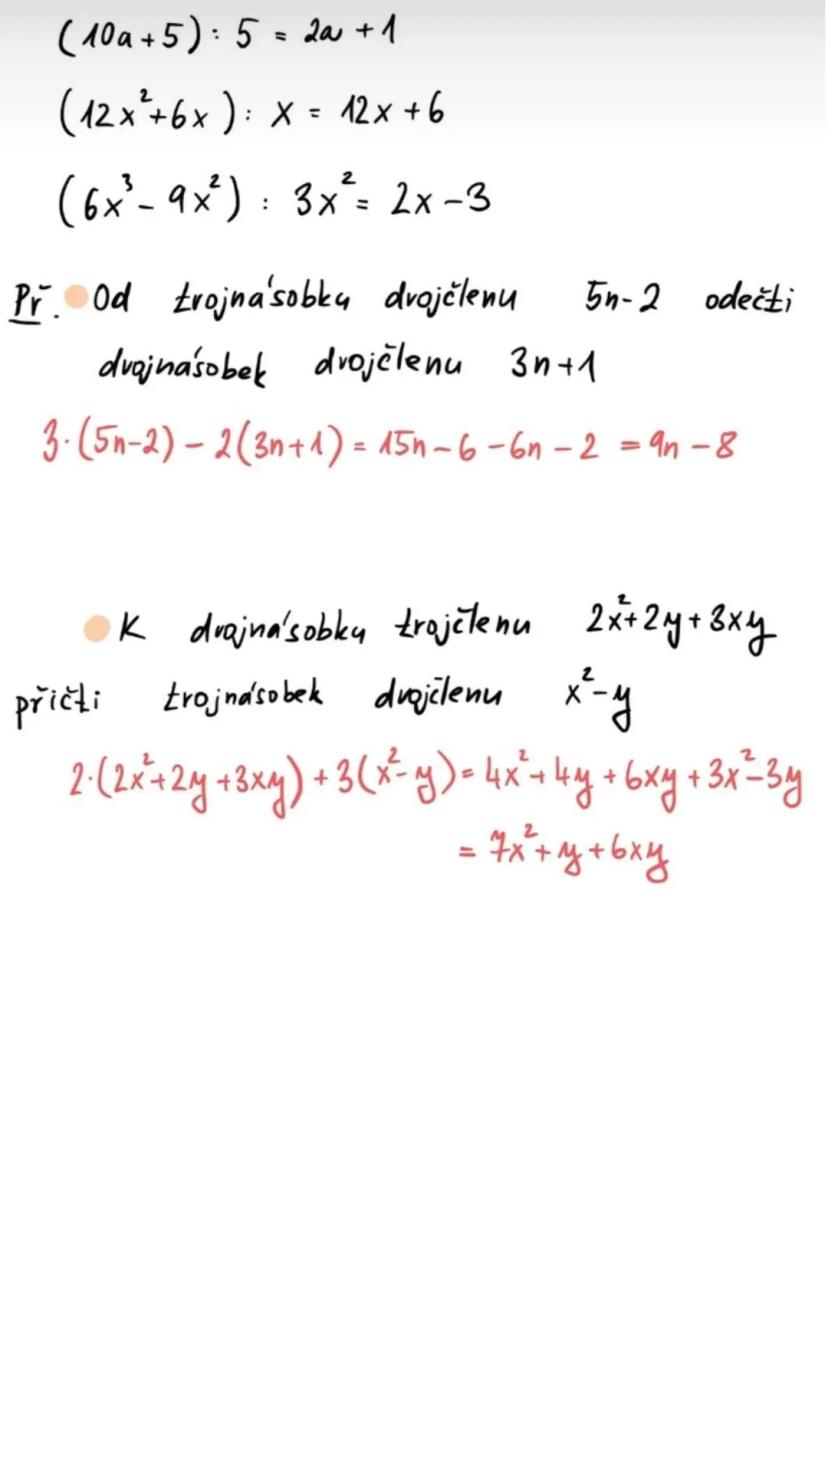 (10a+5) : 5 = 2a + 1
(12x²+6x) : x = 12x + 6
(6x³ - 9x²) : 3x² = 2x - 3
Př. Od trojnásobku dvojčlenu 5n-2 odečti
dvojnásobek dvojčlenu 3n+1
3·(5n-2) - 2(3n+1) = 15n - 6 - 6n - 2 = 9n - 8
K dvojnásobku trojčlenu 2x²+2y+3xy
přičti trojnásobek dvojčlenu x²-y
2·(2x²+2y+3xy) + 3(x²-y) = 4x²+4y+6xy+3x²-3y
= 7x²+y+6xy